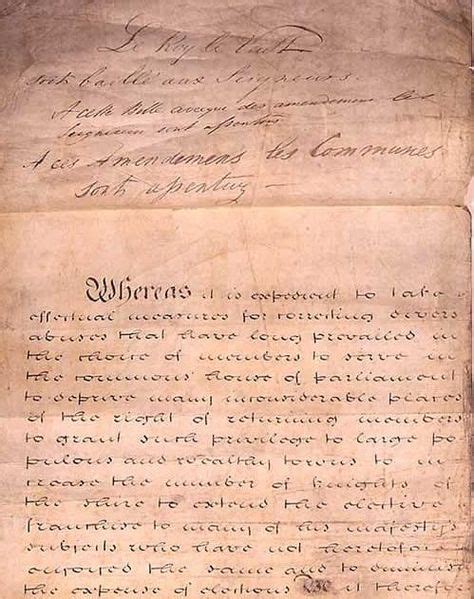 Le Roy le Veult
soit baillé aux Seigneurs.
A ceste Bille avecque des amendemens les
Seigneurs sont assentus
A ces Amendemens les Communes
sont assentuz
Whereas it is expedient to take
effectual measures for correcting divers
abuses that have long prevailed in
the choice of members to serve in
the commons house of parliament
to deprive many inconsiderable places
of the right of returning members
to grant such privilege to large po
pulous and wealthy towns to in
crease the number of knights of
the shire to extend the elective
franchise to many of his majestys
subjects who have not heretofore
enjoyed the same and to diminish
the expense of elections Be it therefore